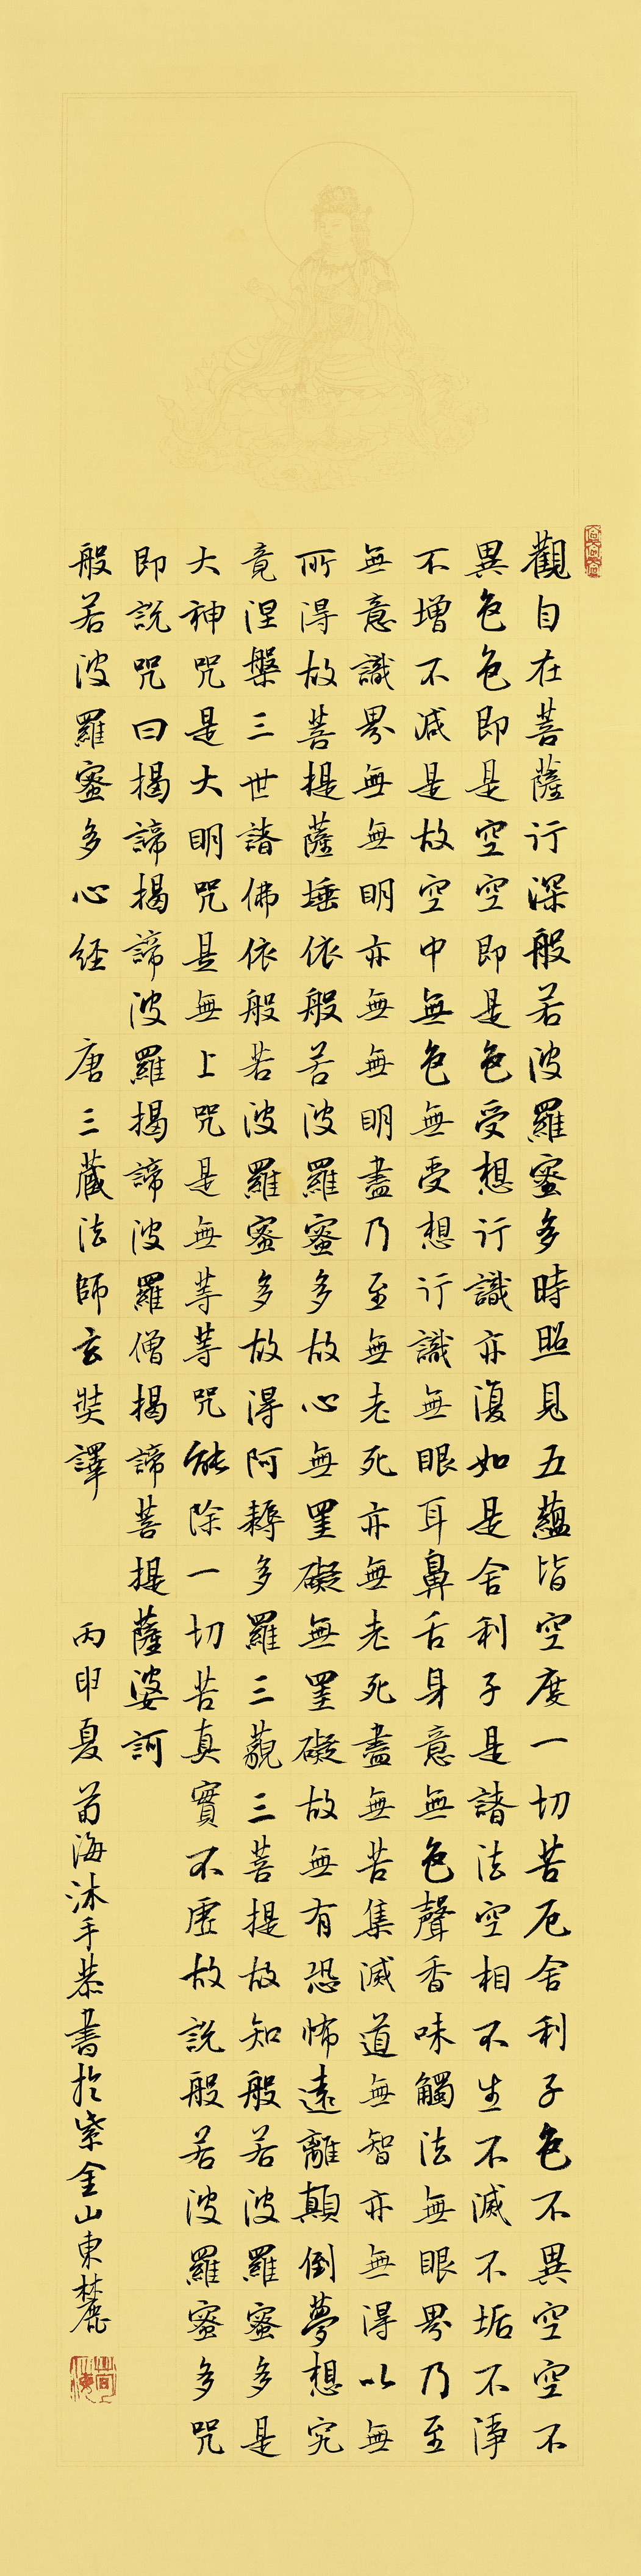 觀自在菩薩行深般若波羅蜜多時照見五蘊皆空度一切苦厄舍利子色不異空空不
異色色即是空空即是色受想行識亦復如是舍利子是諸法空相不生不滅不垢不淨
不增不減是故空中無色無受想行識無眼耳鼻舌身意無色聲香味觸法無眼界乃至
無意識界無無明亦無無明盡乃至無老死亦無老死盡無苦集滅道無智亦無得以無
所得故菩提薩埵依般若波羅蜜多故心無罣礙無罣礙故無有恐怖遠離顛倒夢想究
竟涅槃三世諸佛依般若波羅蜜多故得阿耨多羅三藐三菩提故知般若波羅蜜多是
大神咒是大明咒是無上咒是無等等咒能除一切苦真實不虛故說般若波羅蜜多咒
即說咒曰揭諦揭諦波羅揭諦波羅僧揭諦菩提薩婆訶
般若波羅蜜多心経 唐三藏法師玄奘譯 丙申夏 海沐手恭書於紫金山東麓